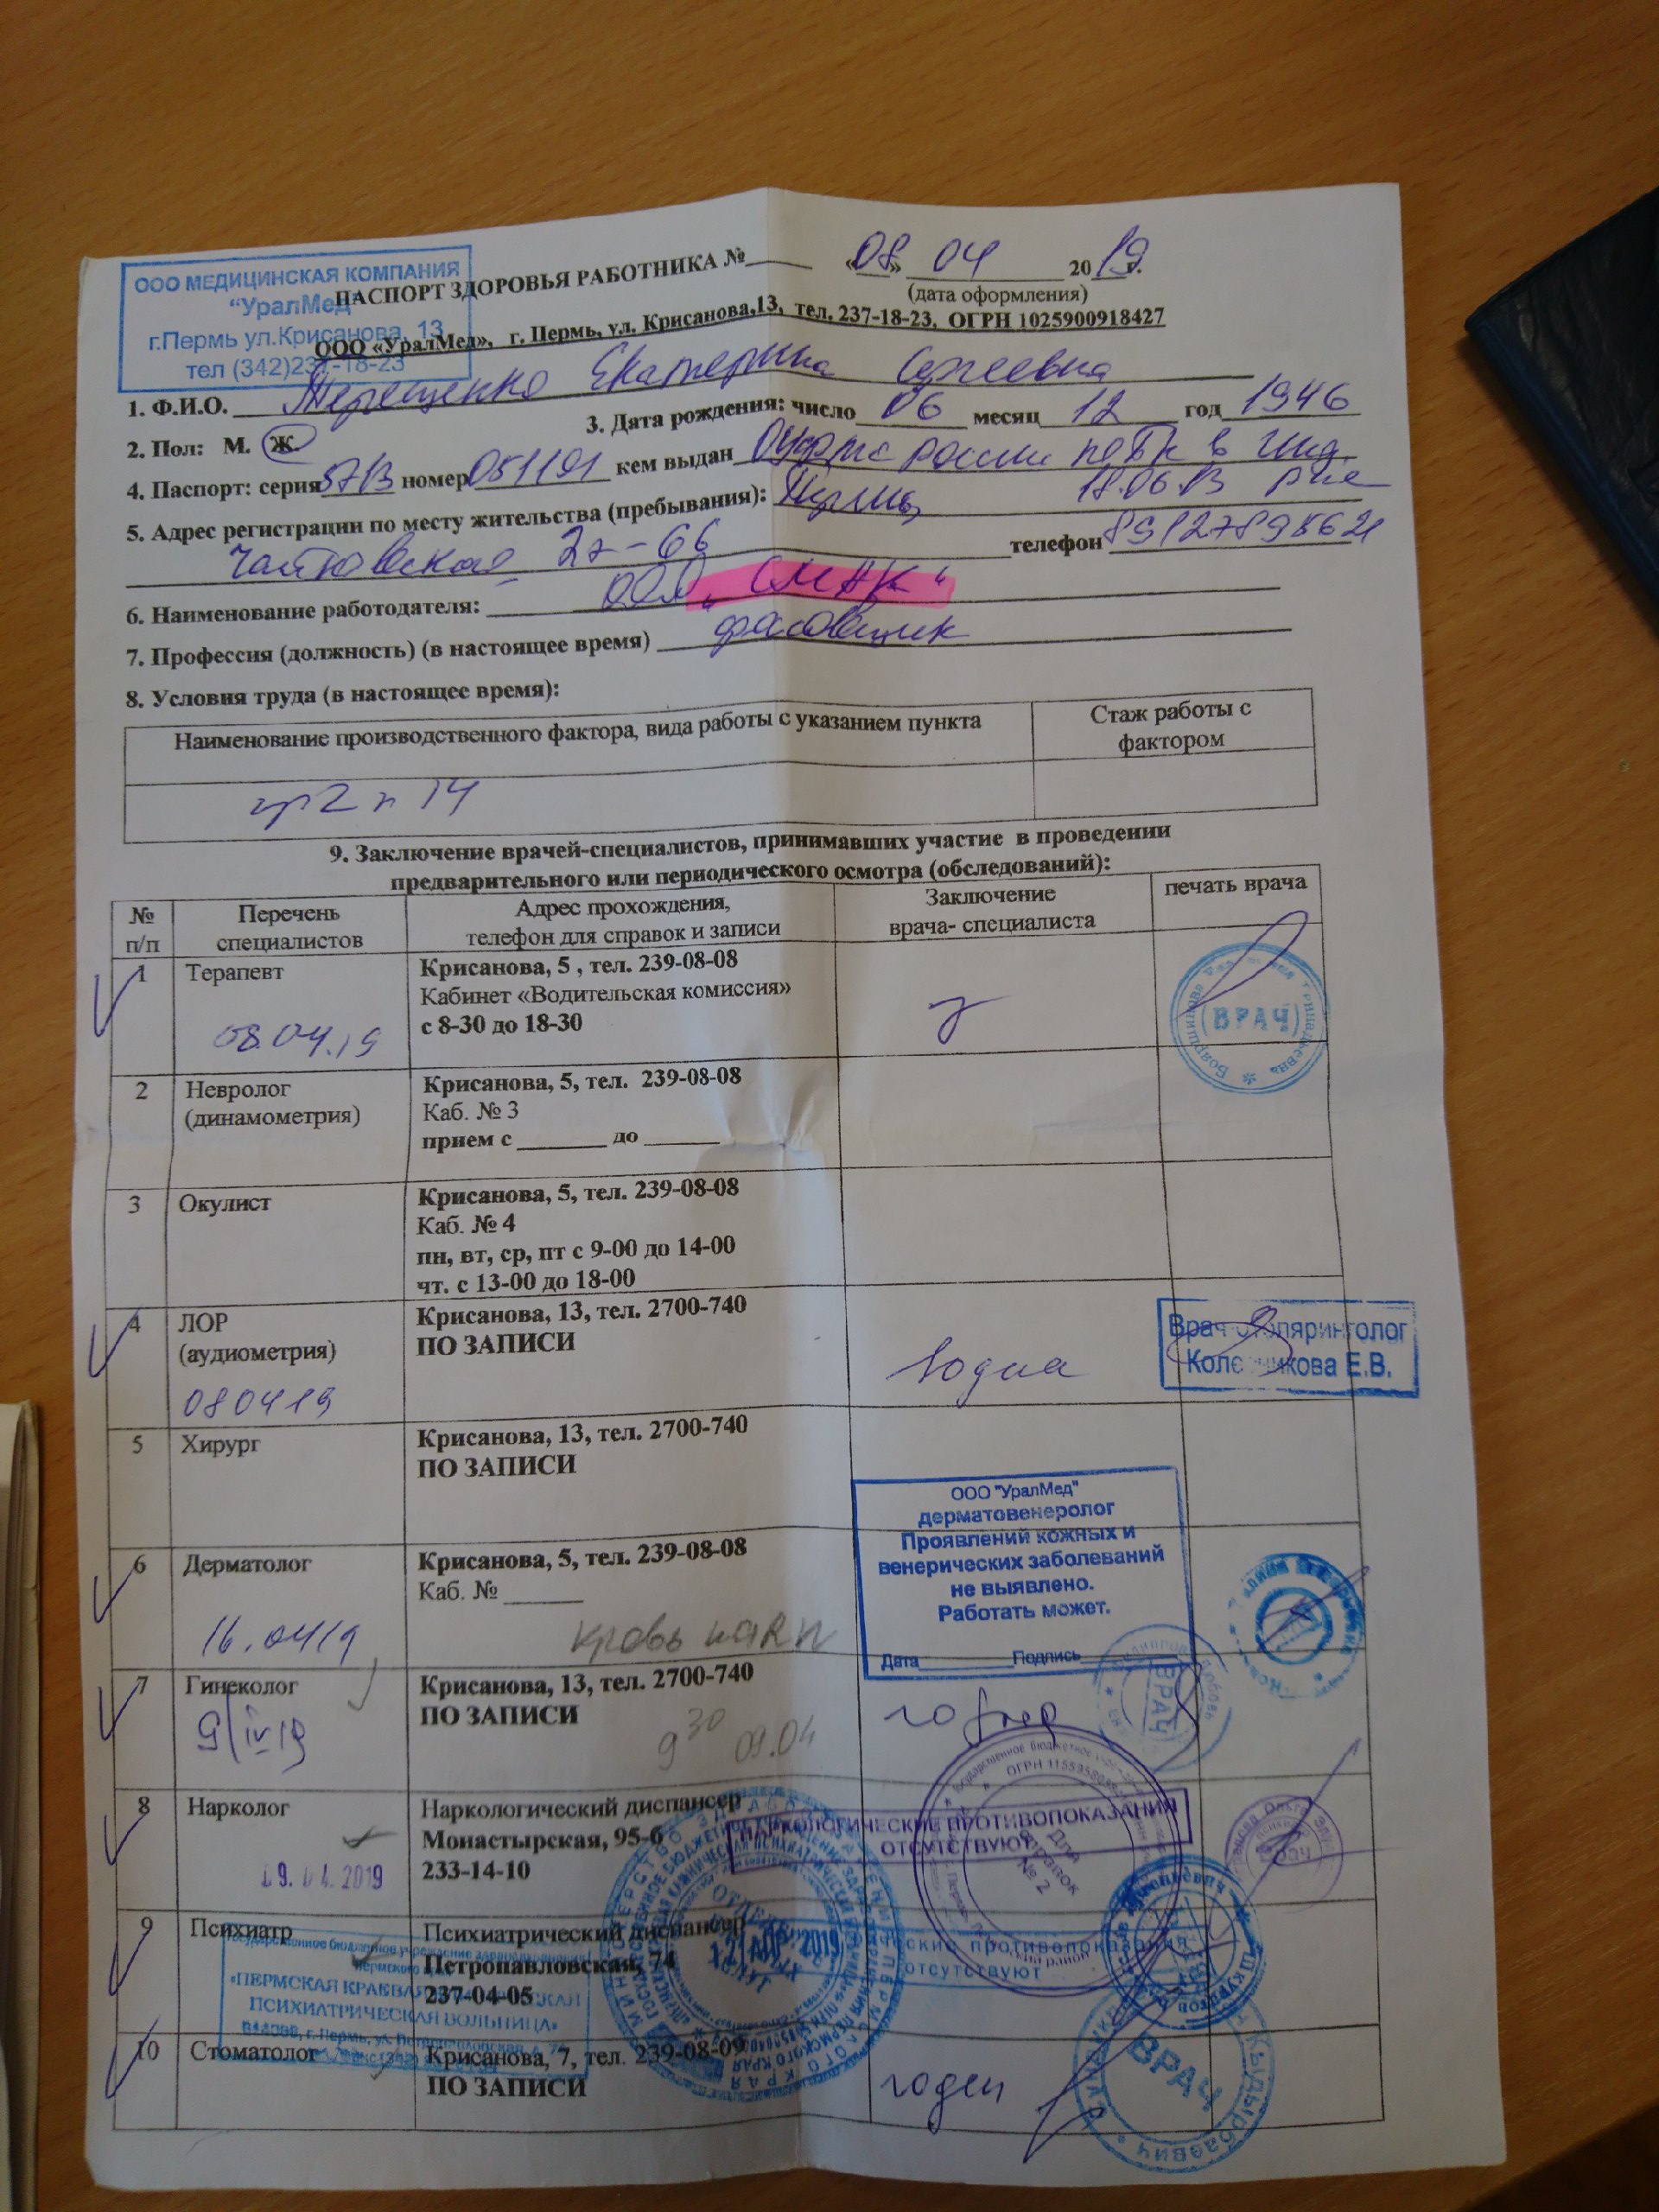 ООО МЕДИЦИНСКАЯ КОМПАНИЯ
"УралМед"
г.Пермь ул.Крисанова, 13
тел (342)237-18-23
ПАСПОРТ ЗДОРОВЬЯ РАБОТНИКА №______ «08» 04 2019г.
(дата оформления)
ООО «УралМед», г. Пермь, ул. Крисанова,13, тел. 237-18-23, ОГРН 1025900918427
1. Ф.И.О. Терещенко Екатерина
2. Пол: М. Ж. 3. Дата рождения: число 06 месяц 12 год 1946
4. Паспорт: серия 5713 номер 051191 кем выдан России по ПК в
5. Адрес регистрации по месту жительства (пребывания): Пермь, 18.06.13
27-66 телефон
6. Наименование работодателя: ООО "СМАК"
7. Профессия (должность) (в настоящее время) фасовщик
8. Условия труда (в настоящее время):
Наименование производственного фактора, вида работы с указанием пункта Стаж работы с фактором
пр2 п 14
9. Заключение врачей-специалистов, принимавших участие в проведении
предварительного или периодического осмотра (обследований):
№ п/п Перечень специалистов Адрес прохождения, телефон для справок и записи Заключение врача- специалиста печать врача
1 Терапевт Крисанова, 5 , тел. 239-08-08
Кабинет «Водительская комиссия»
08.04.19 с 8-30 до 18-30
ВРАЧ
2 Невролог Крисанова, 5, тел. 239-08-08
(динамометрия) Каб. № 3
прием с ________ до _______
3 Окулист Крисанова, 5, тел. 239-08-08
Каб. № 4
пн, вт, ср, пт с 9-00 до 14-00
чт. с 13-00 до 18-00
4 ЛОР Крисанова, 13, тел. 2700-740
(аудиометрия) ПО ЗАПИСИ
080419 годна
Врач
Е.В.
5 Хирург Крисанова, 13, тел. 2700-740
ПО ЗАПИСИ
ООО "УралМед"
дерматовенеролог
Проявлений кожных и
венерических заболеваний
не выявлено.
Работать может.
Дата Подпись
6 Дерматолог Крисанова, 5, тел. 239-08-08
Каб. № _______
16.0419 кровь на
7 Гинеколог Крисанова, 13, тел. 2700-740
9/IV 19 ПО ЗАПИСИ
9 30 09.04
ВРАЧ
8 Нарколог Наркологический диспансер
Монастырская, 95-б
09.04.2019 233-14-10
НАРКОЛОГИЧЕСКИЕ ПРОТИВОПОКАЗАНИЯ
ОТСУТСТВУЮТ
Для справок № 2
9 Психиатр Психиатрический диспансер
Петропавловская, 74
237-04-05
«ПЕРМСКАЯ КРАЕВАЯ
ПСИХИАТРИЧЕСКАЯ БОЛЬНИЦА»
12 АПР 2019
противопоказания
отсутствуют
10 Стоматолог Крисанова, 7, тел. 239-08-09
ПО ЗАПИСИ годен
ВРАЧ